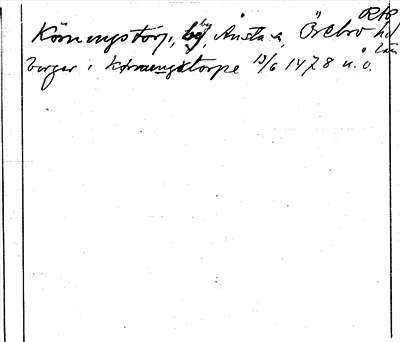 RAP
Körningstorp, by, Ånsta sn, Örebro hd
län
birger i Körnungxtorpe 13/6 1478 n.o.